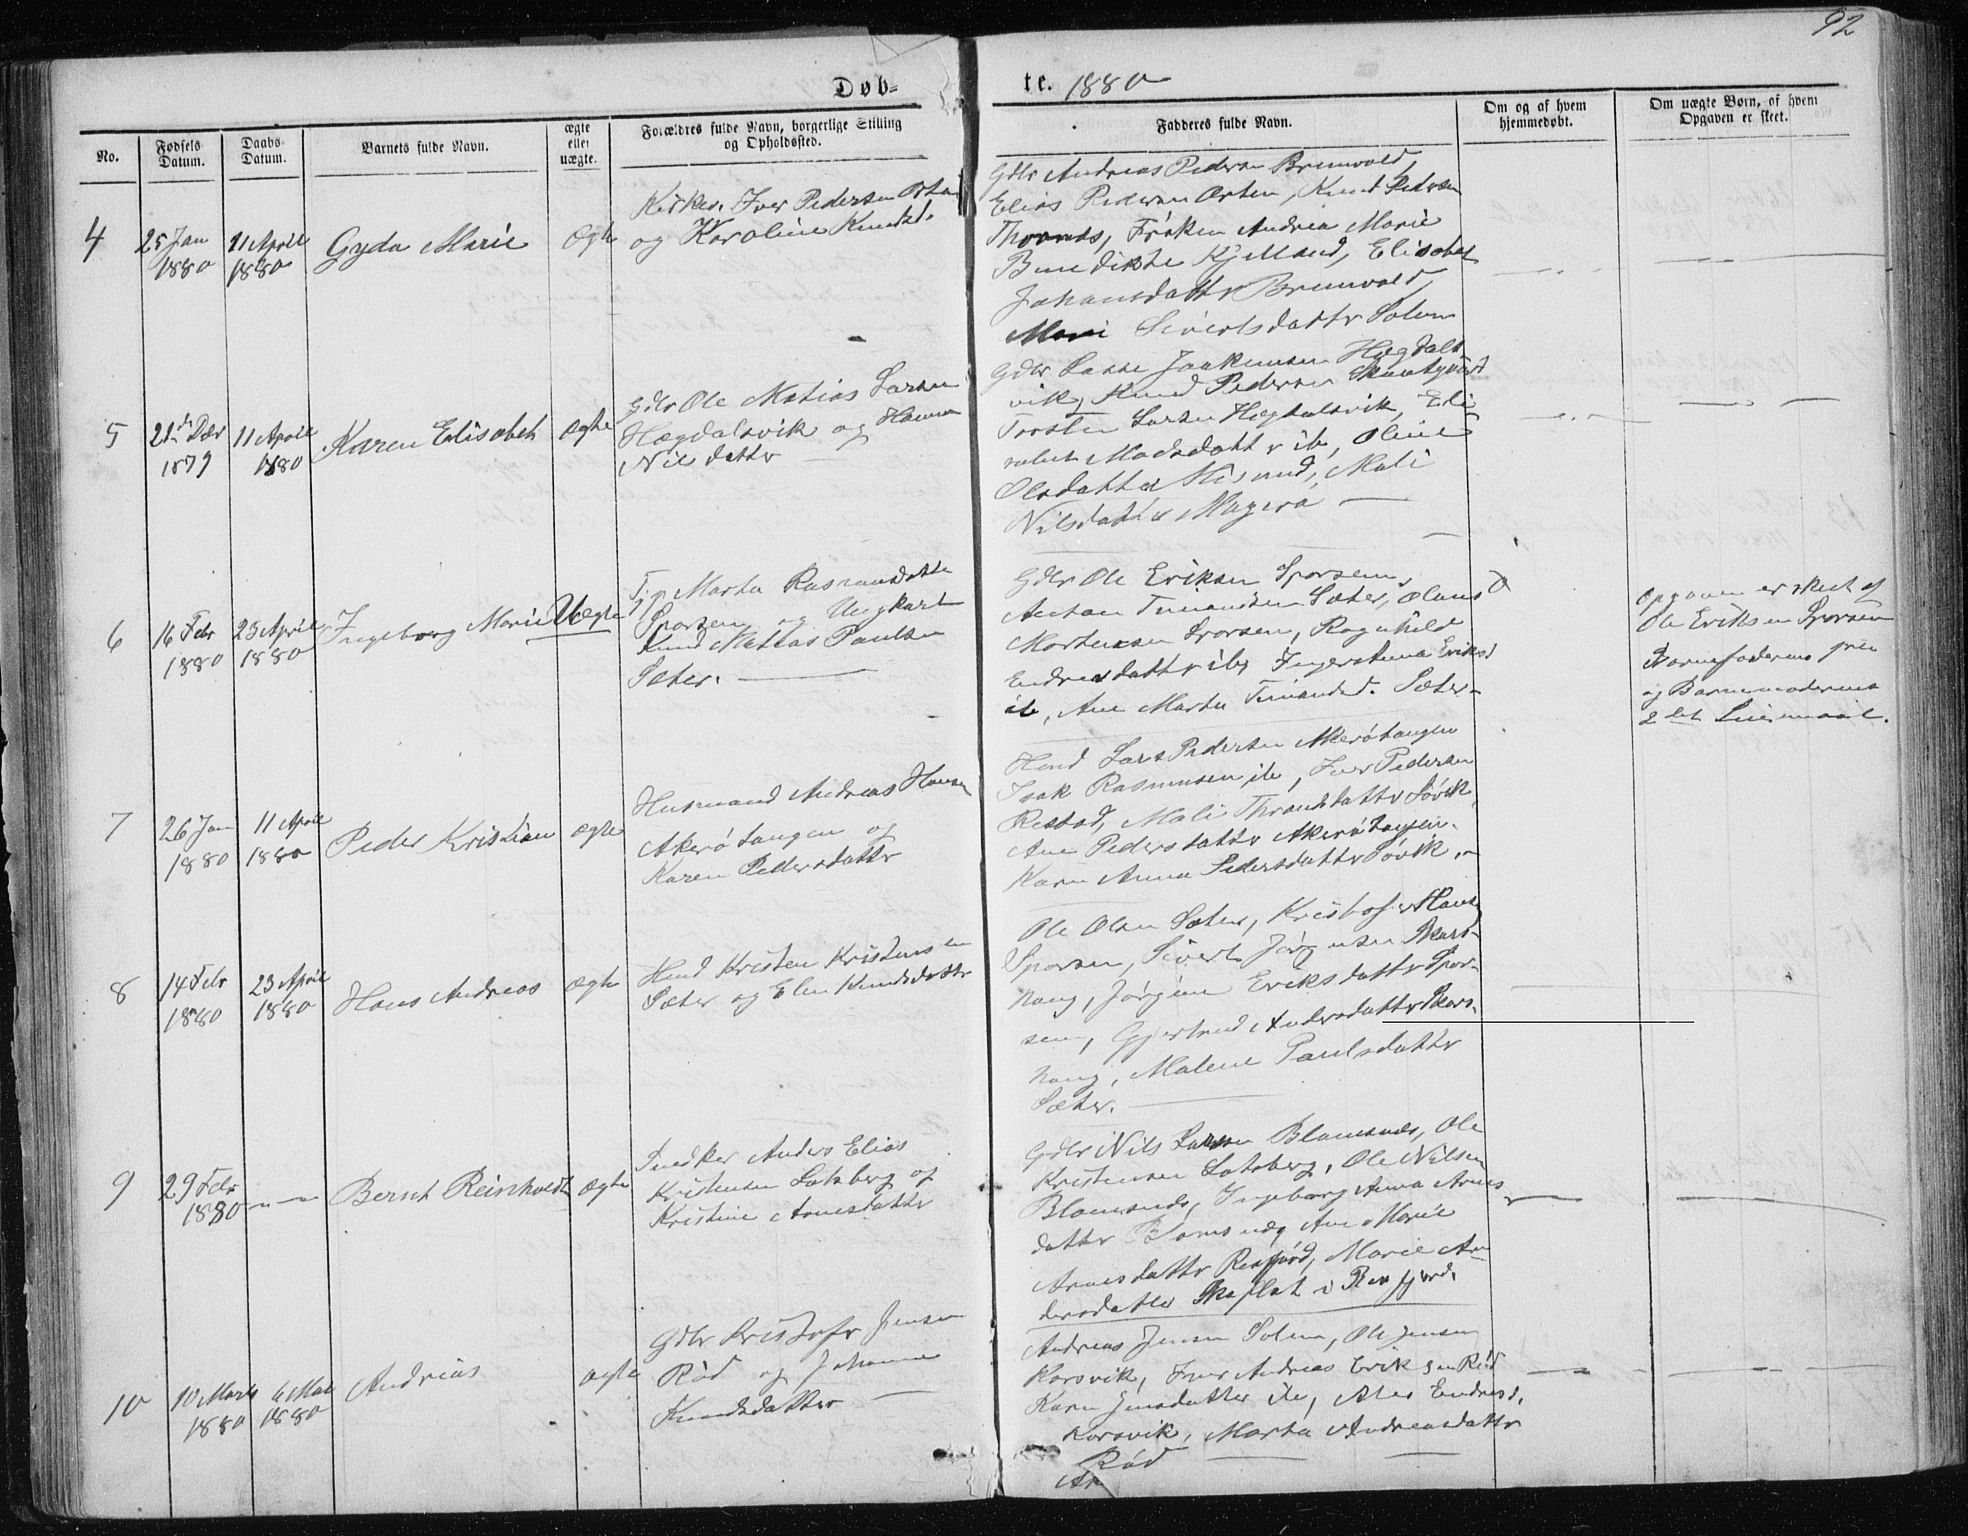 92
Døb-
te. 1880
No.
Fødsels Datum.
Daabs Datum.
Barnets fulde Navn.
ægte eller uægte.
Forældres fulde Navn, borgerlige Stilling og Opholdssted.
Fadderes fulde Navn.
Om og af hvem hjemmedøbt.
Om uægte Børn, af hvem Opgaven er skeet.
4
25 Jan 1880
11 April 1880
Gyda Marie
Ægte
Iver Pedersen Orten
og Karoline Knudsd.
Gdbr Andreas Pedersen Brunvold,
Elias Pedersen Orten, Knud Pedersen
Frøken Andrea Marie
Benedikte Elisabet
Johansdatter Brunvold,
Sivertsdatter Solem
5
21de Dec 1879
11 April 1880
Karen Elisabeth
Ægte
Gdbr Ole Matias Larsen
Hægdalsvik og Hanna
Nilsdatter
Gdbr Lasse Joakimsen Hægdals
vik, Knud Pedersen
Torsten Larsen Hægdalsvik, Eli
Madsdatter ib, Oline
Olsdatter Misund, Mali
Nilsdatter Magerø
6
16 Febr 1880
23 April 1880
Ingeborg Marie
Uægte
Tjp. Marta Rasmusdatter
Sporsem og Ungkarl
Knud Matias Paulsen
Sæter.
Gdbr Ole Eriksen Sporsem,
Anton Sæter, Olaus
Mortensen Sporsem, Ragnhild
Endresdatter ib, Inger Anna Eriksd
ib, Ane Marta Sæter
Opgaven er skeet af
Ole Eriksen Sporsem
Barnefaderens
og Barnemoderens
2det Leiermaal.
7
26 Jan 1880
11 April 1880
Peder Kristian
Ægte
Husmand Andreas Hansen
Akerøtangen og
Karen Pedersdatter
Hmd Lars Pedersen Akerøtangen
Isak Rasmusen ib, Iver Pedersen
Restad, Mali Thronsdatter Søvik,
Ane Pedersdatter Akerøtangen.
Karen Anna Pedersdatter Søvik
8
14 Febr 1880
23 April 1880
Hans Andreas
Ægte
Hmd Kristen Kristensen
Sæter og Elen Knudsdatter
Ole Olsen Sæter, Kristofer Hansen
Sporsem, Sivert Jørgensen Skars-
haug, Jørgine Eriksdatter Spor-
sem, Gjertrud Andersdatter Skars-
haug, Malene Paulsdatter
Sæter.
9
29 Febr 1880
— " —
Bernt Reinholdt
Ægte
Snedker Anders Elias
Kristensen Latsberg og
Kristine Arnesdatter
Gdbr Nils Larsen Blomsnes, Ole
Kristensen Latsberg, Ole Nilsen
Blomsnes, Ingeborg Anna Arnes
datter Blomsnes, Ane Marie
Arnesdatter Marie An
dersdatter Skaflot i
10
10 Marts 1880
6 Mai 1880
Andreas
Ægte
Gdbr Kristofer Jensen
Rød og Johanne
Knudsdatter
Andreas Jensen Solem, Ole Jensen
Korsvik, Iver Andreas Eriksen Rød
Karen Jensdatter ib, Endresd.
Korsvik, Marta Andreasdatter
Rød